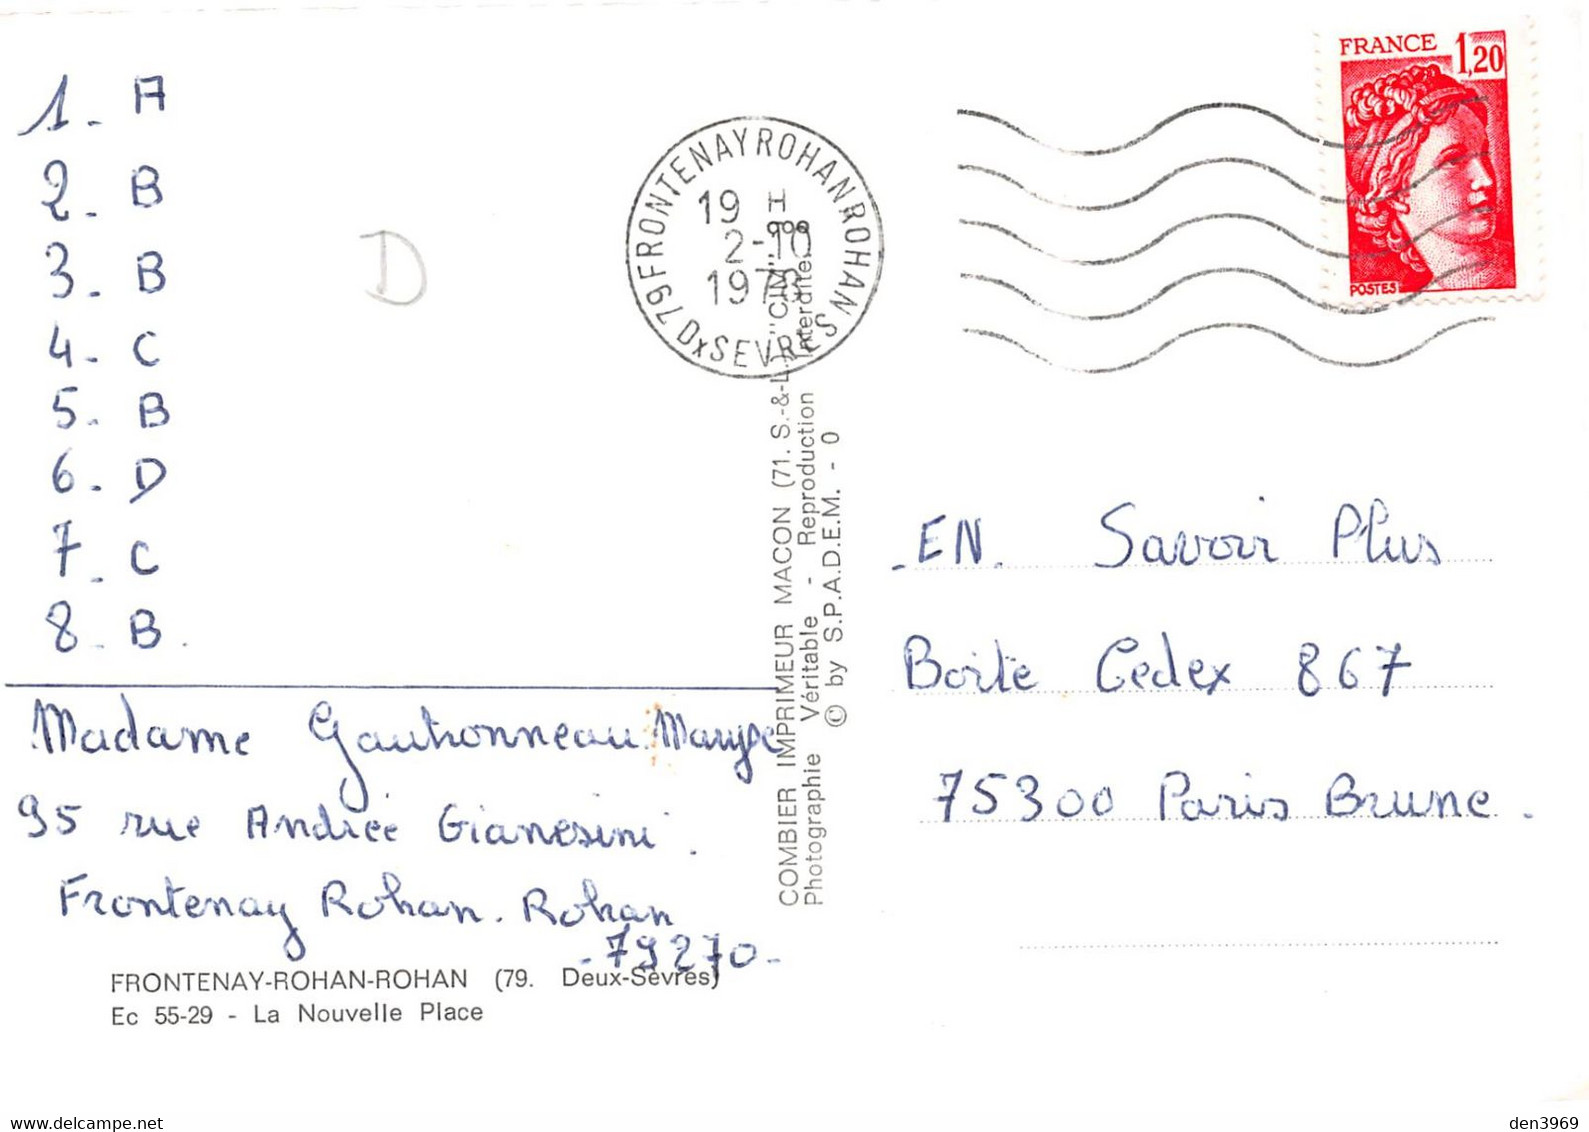 1. A
2. B
3. B
4. C
5. B
6. D
7. C
8. B.
D
Madame Gauthonneau Maryse
95 rue Andrée Gianesini.
Frontenay Rohan. Rohan
- 79270 -
FRONTENAY-ROHAN-ROHAN (79. Deux-Sèvres)
Ec 55-29 - La Nouvelle Place
79 FRONTENAY ROHAN ROHAN
19 H
2-10
1978
Dx SEVRES
COMBIER IMPRIMEUR MACON (71. S.-&-L.) "CIM"
Photographie Véritable - Reproduction Interdite
© by S.P.A.D.E.M. - 0
FRANCE 1,20
POSTES
- EN. Savoir Plus
Boite Cedex 867
75300 Paris Brune.
den3969